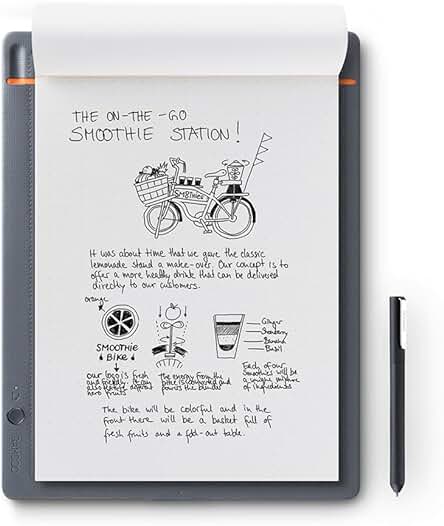 THE ON-THE-GO
SMOOTHIE STATION!
SMOOTHIES
It was about time that we gave the classic
lemonade stand a make-over. Our concept is to
offer a more healthy drink that can be delivered
directly to our customers.
orange
SMOOTHIE
BIKE
our logo is fresh
and friendly. It can
also
hero fruits
The energy from the
bike is converted and
powers the blender
Ginger
Strawberry
Banana
Basil
Each of our
Smoothies will be
a unique mixture
of ingredients
The bike will be colorful and in the
front there will be a basket full of
fresh fruits and a fold-out table.
BAMBOO